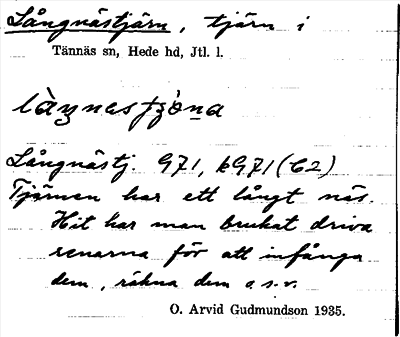 Långnästjärn, tjärn i
Tännäs sn, Hede hd, Jtl. l.
Långnästj. 971, k971 (C2)
Tjärnen har ett långt näs.
Hit har man brukat driva
renarna för att infånga
dem, räkna dem o.s.v.
O. Arvid Gudmundson 1935.